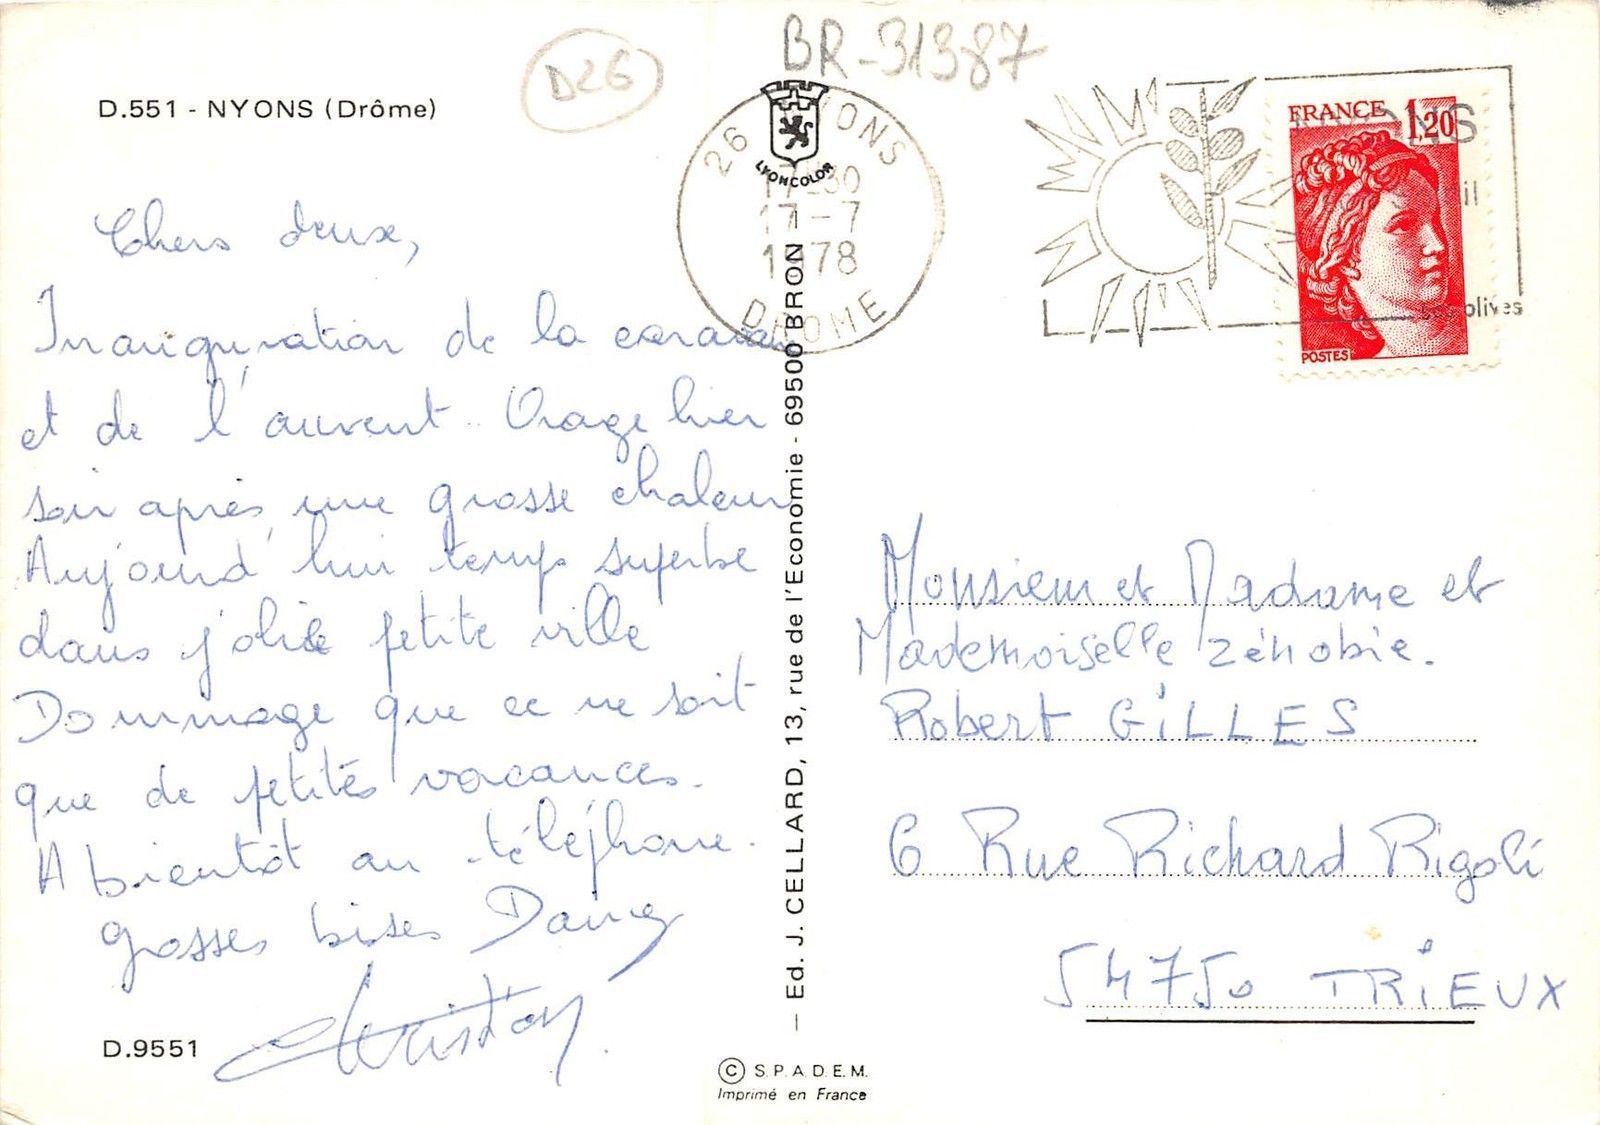 D26
BR-31387
D.551 - NYONS (Drôme)
Chers deux,
Inauguration de la caravane
et de l'auvent. Orage hier
soir après une grosse chaleur
Aujourd'hui temps superbe
dans jolie petite ville
Dommage que ce ne soit
que de petites vacances.
A bientôt au téléphone.
grosses bises Dany
Christian
D.9551
LYONCOLOR
— Ed. J. CELLARD, 13, rue de l'Economie - 69500 BRON
© S.P.A.D.E.M.
Imprimé en France
26 NYONS
17-30
17-7
1978
DROME
NYONS
olives
FRANCE 1,20
POSTES
Monsieur et Madame et
Mademoiselle Zénobie.
Robert GILLES
6 Rue Richard Rigoli
54750 TRIEUX